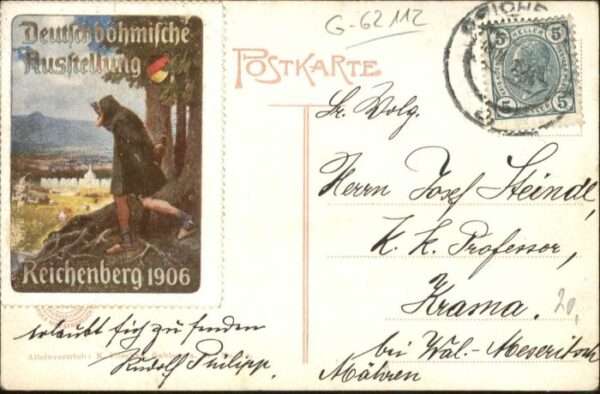 Deutschböhmische
Ausstellung
Reichenberg 1906
G-62112
POSTKARTE
5 5
5 5
Sr. Wolg.
Herrn Josef Steindl,
K. k. Professor,
Krasna.
20,
bei Wal.-Meseritsch
Mähren
erlaubt sich zu senden
Rudolf Philipp.